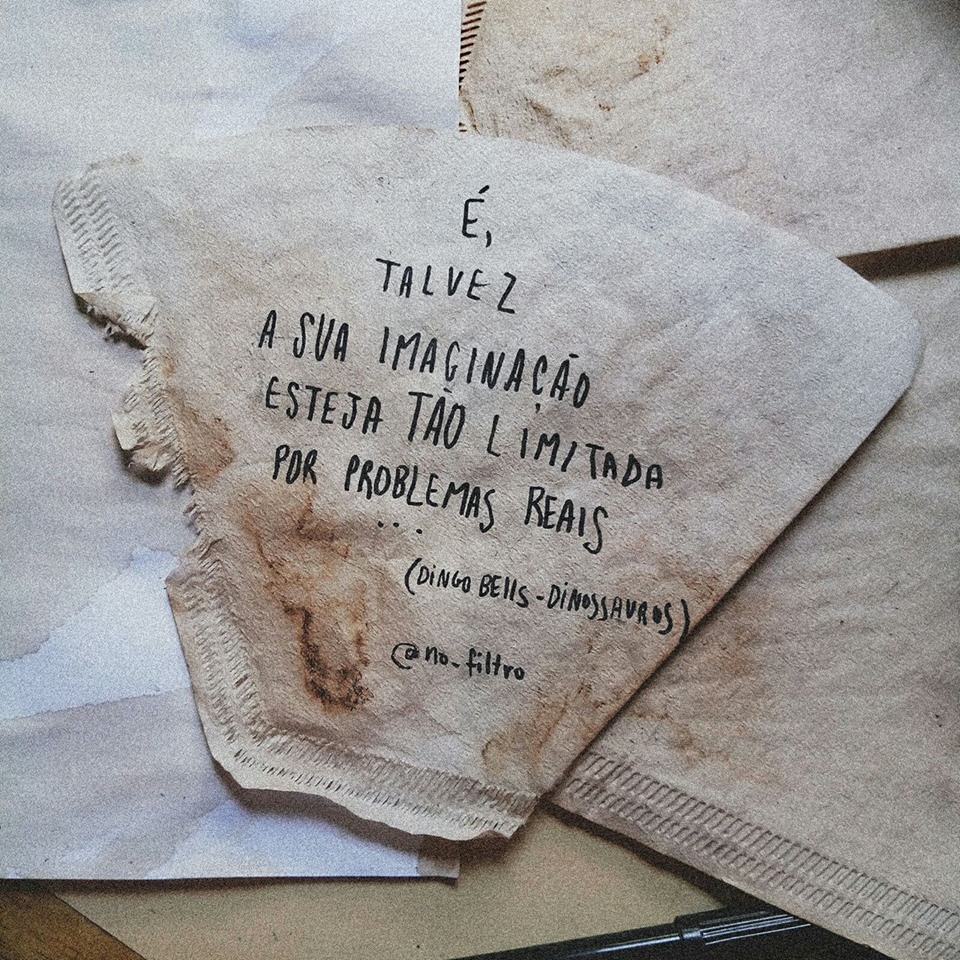 É,
TALVEZ
A SUA IMAGINAÇÃO
ESTEJA TÃO LIMITADA
POR PROBLEMAS REAIS
...
(DiNGO BEllS - DiNOSSAUROS)
@no_filtro